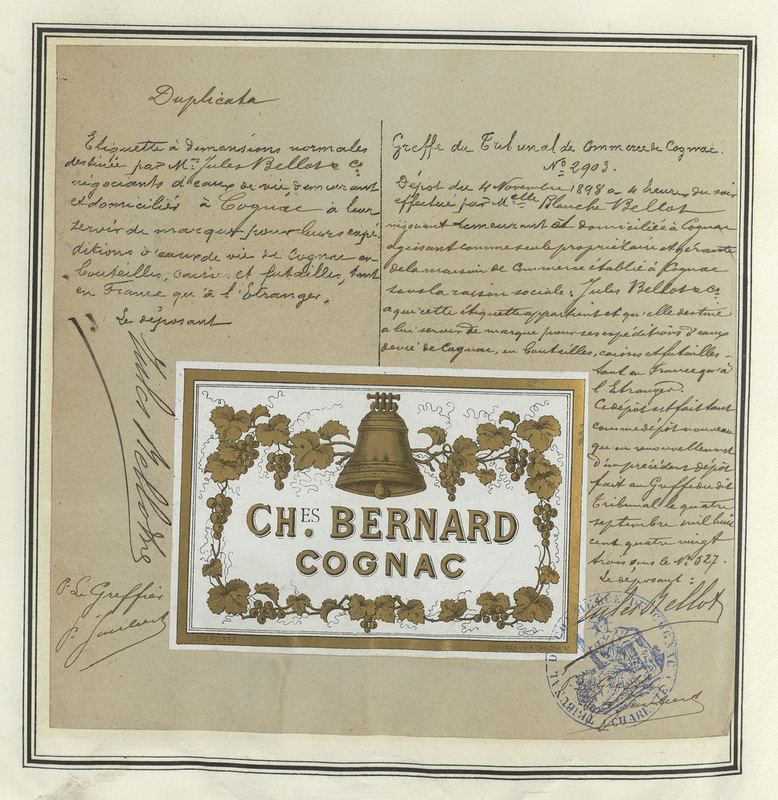 Duplicata
Etiquette à dimensions normales
destinée par Mrs Jules Bellot & Co
négociants d'eaux de vie demeurant
et domiciliés à Cognac à leur
servir de marque pour leurs expé
ditions d'eaux de vie de Cognac en
bouteilles, caisses et futailles, tant
en France qu'à l'Etranger.
Le déposant
Jules Bellot & Co
P. Le Greffier
Greffe du Tribunal de Commerce de Cognac.
No 2903.
Dépôt du 4 Novembre 1898 à 4 heures du soir
effectué par Melle Blanche Bellot
négociant demeurant et domiciliée à Cognac
agissant comme seule propriétaire et gérante
de la maison de Commerce établie à Cognac
sous la raison sociale: Jules Bellot & Co
à qui cette étiquette appartient et qu'elle destine
à lui servir de marque pour ses expéditions d'eaux
de vie de Cognac, en bouteilles, caisses et futailles -
tant en France qu'à
l'Etranger.
Ce dépôt est fait tant
comme dépôt nouveau
qu'en renouvellement
d'un précédent dépôt
fait au Greffe du dit
Tribunal le quatre
septembre mil huit
cent quatre vingt
trois sous le No 527.
Le déposant:
Jules Bellot
CHES. BERNARD
COGNAC
DÉPOSÉE
TRIBUNAL DE COMMERCE DE COGNAC
(CHARENTE)